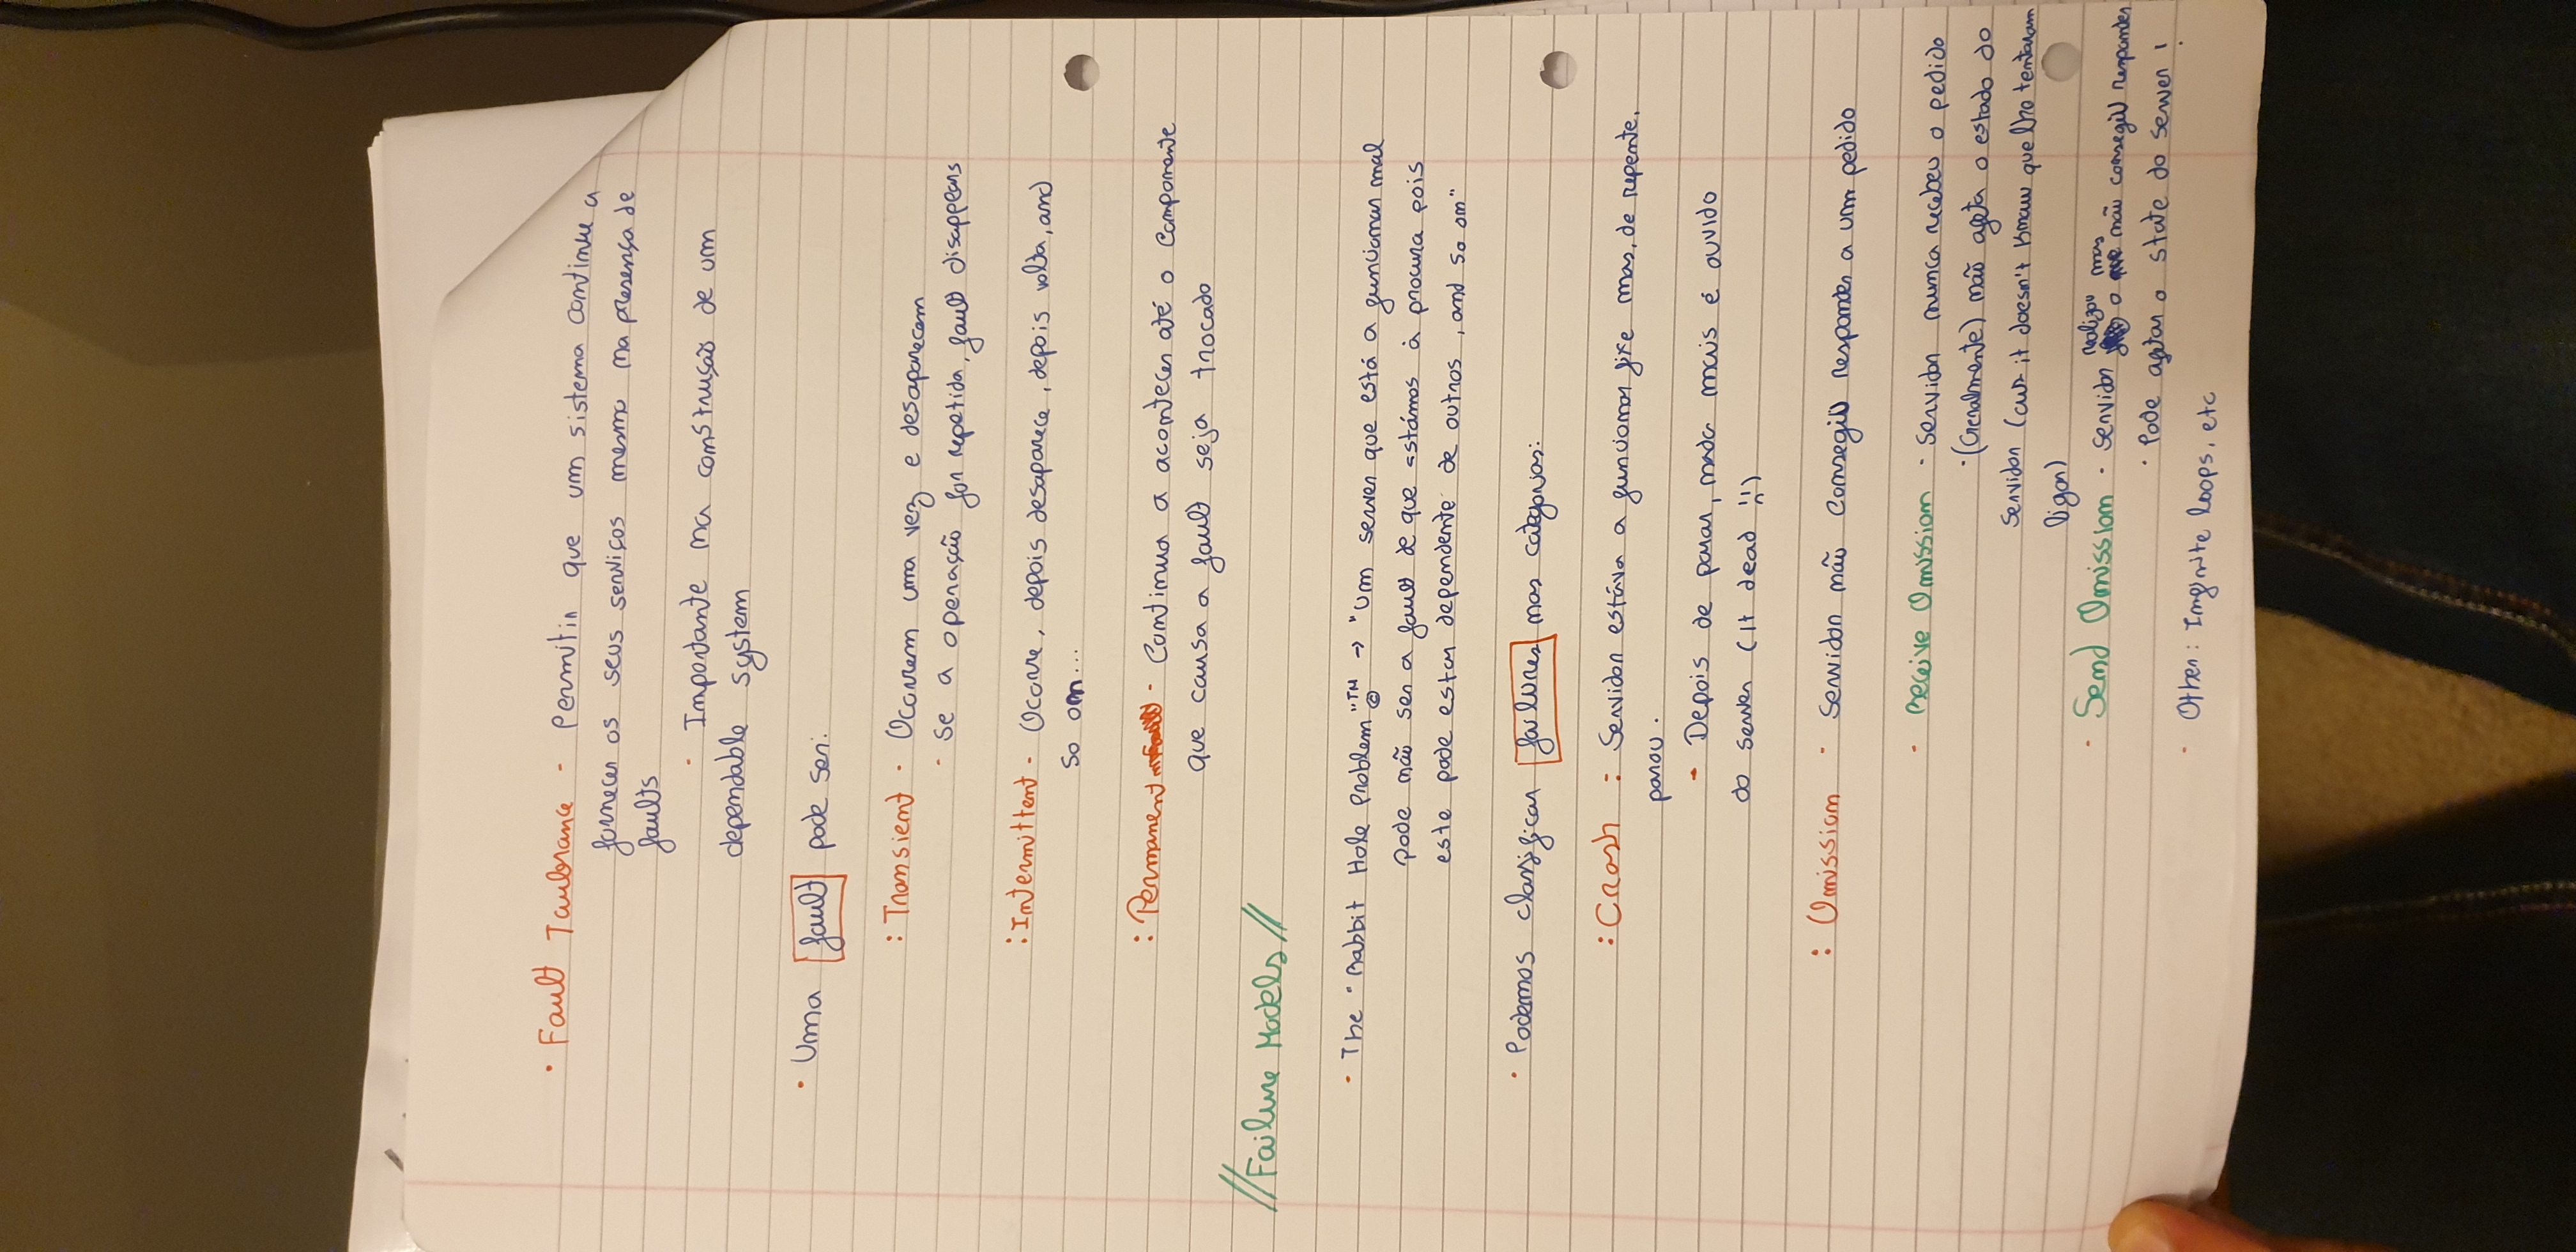 · Fault Taulerance - Permitir que um sistema continue a
fornecer os seus serviços mesmo na presença de
faults
· Importante na construção de um
dependable system
· Uma fault pode ser:
: Transient · Ocorrem uma vez e desaparecem
· Se a operação for repetida, fault disappears
: Intermittent - Ocorre, depois desaparece, depois volta, and
so on...
: Permanent - Continua a acontecer até o componente
que causa a fault seja trocado
// Failure Models //
· The "Rabbit Hole Problem"™© → "Um server que está a funcionar mal
pode não ser a fault de que estámos à procura pois
este pode estar dependente de outros, and so on"
· Podemos classificar failures nas categorias:
: Crash : Servidor estáva a funcionar fixe mas, de repente,
parou.
- Depois de parar, nada mais é ouvido
do server (It dead !!)
: Omission · Servidor não consegiu responder a um pedido
· Receive Omission · Servidor nunca recebeu o pedido
· (Geralmente) não afeta o estado do
servidor (cuz it doesn't know que lho tentaram
ligar)
· Send Omission · Servidor realizou o mas não consegiu responder
· Pode afetar o state do server!
· Other: Infinite loops, etc